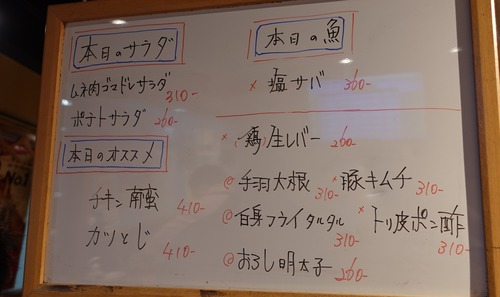 本日のサラダ
ムネ肉ゴマドレサラダ
310-
ポテトサラダ 260-
本日のオススメ
チキン南蛮 410-
カツとじ 410-
本日の魚
× 塩サバ 360-
× (鶏)生レバー 260-
@ 手羽大根 310-
× 豚キムチ 310-
@ 白身フライタルタル 310-
× トリ皮ポン酢 310-
@ おろし明太子 260-
No1